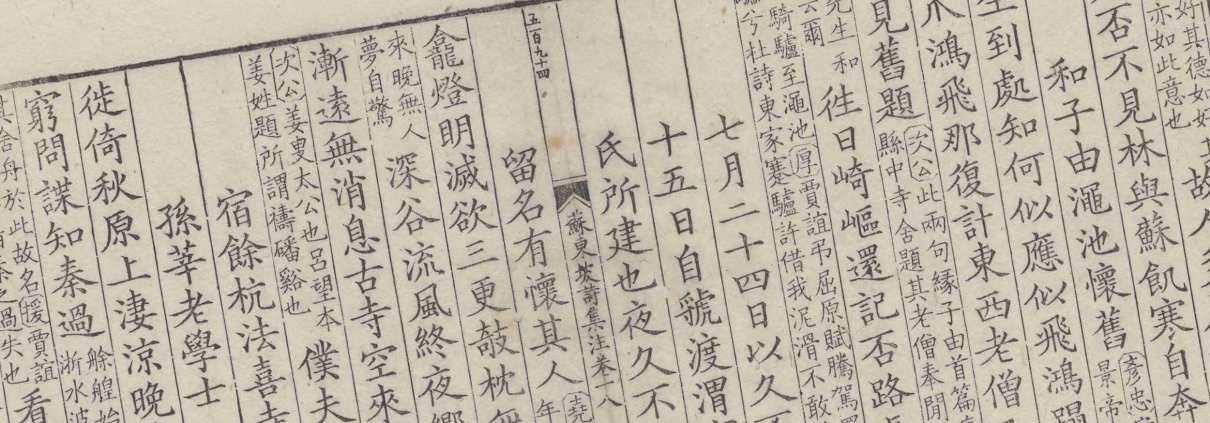 好其德如好
亦如此意也
否不見林與蘇飢寒自奔
彥忠
和子由澠池懷舊
景帝
生到處知何似應似飛鴻蹋
爪鴻飛那復計東西老僧
見舊題
次公此兩句緣子由首篇
縣中寺舍題其老僧奉閒
往日崎嶇還記否路
先生和
公爾
騎驢至澠池厚賈誼弔屈原賦騰駕罷
驢兮杜詩東家蹇驢許借我泥滑不敢
七月二十四日以久
十五日自虢渡渭
氏所建也夜久不
蘇東坡詩集注卷二八
五百九十四
留名有懷其人
年
龕燈明滅欲三更攲枕無
來晚無人
夢自驚
深谷流風終夜
漸遠無消息古寺空來
次公姜叟太公也呂望本
姜姓題所謂禱磻谿也
僕夫
宿餘杭法喜寺
孫莘老學士
徙倚秋原上淒涼晚
窮問謀知秦過
艅艎始
浙水波
看
其舍舟於此故名援賈誼
過失也